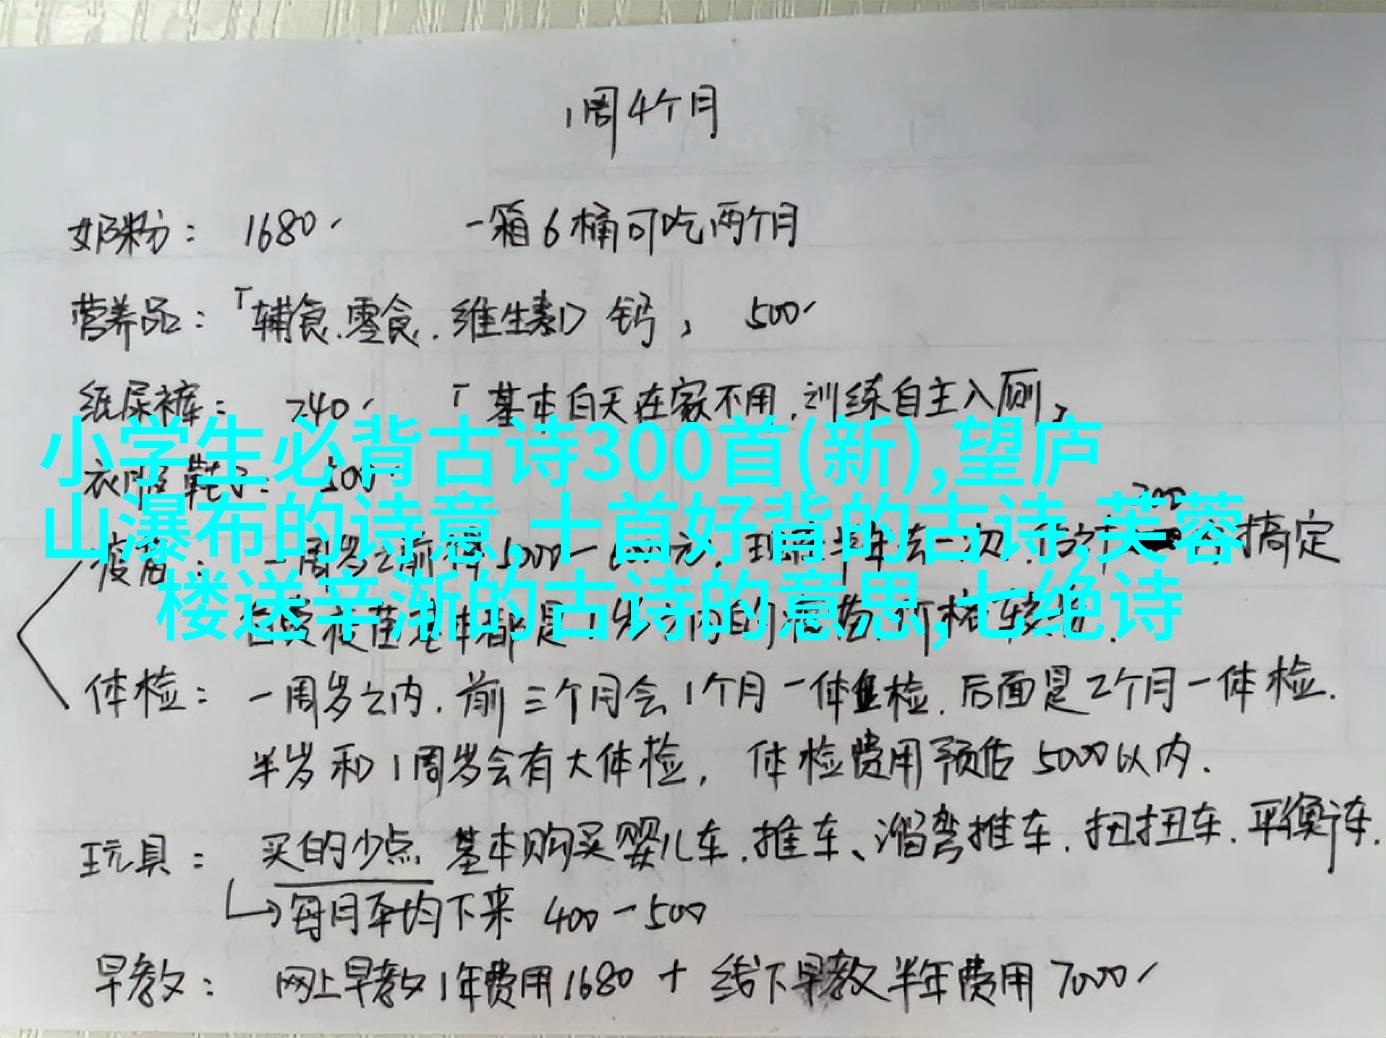 1周4个月
奶粉： 1680 一箱6桶可吃两个月
营养品：「辅食.零食.维生素D 钙」 500
纸尿裤： 240 「基本白天在家不用.训练自主入厕」
小学生必背古诗300首(新),望庐
衣服鞋子： 500
山瀑布的诗意,十首好背的古诗,芙蓉
疫苗： 一周岁之前 5000一 元. 半年去一次. 搞定
楼送辛渐的古诗的意思,七绝诗
体检： 一周岁之内.前三个月会1个月一体检.后面是2个月一体检.
半岁和1周岁会有大体检， 体检费用预估5000以内.
玩具： 买的少点 基本购买婴儿车.推车、溜弯推车.扭扭车.平衡车.
每月平均下来 400一500
早教： 网上早教1年费用1680 + 线下早教半年费用7000